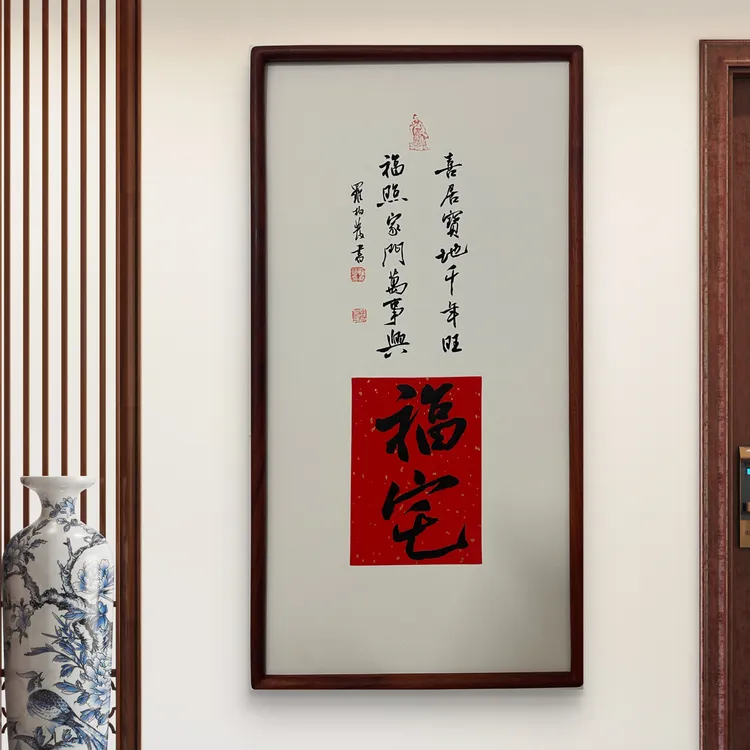 喜居寶地千年旺
福照家門萬事興
羅柏茂書
福宅